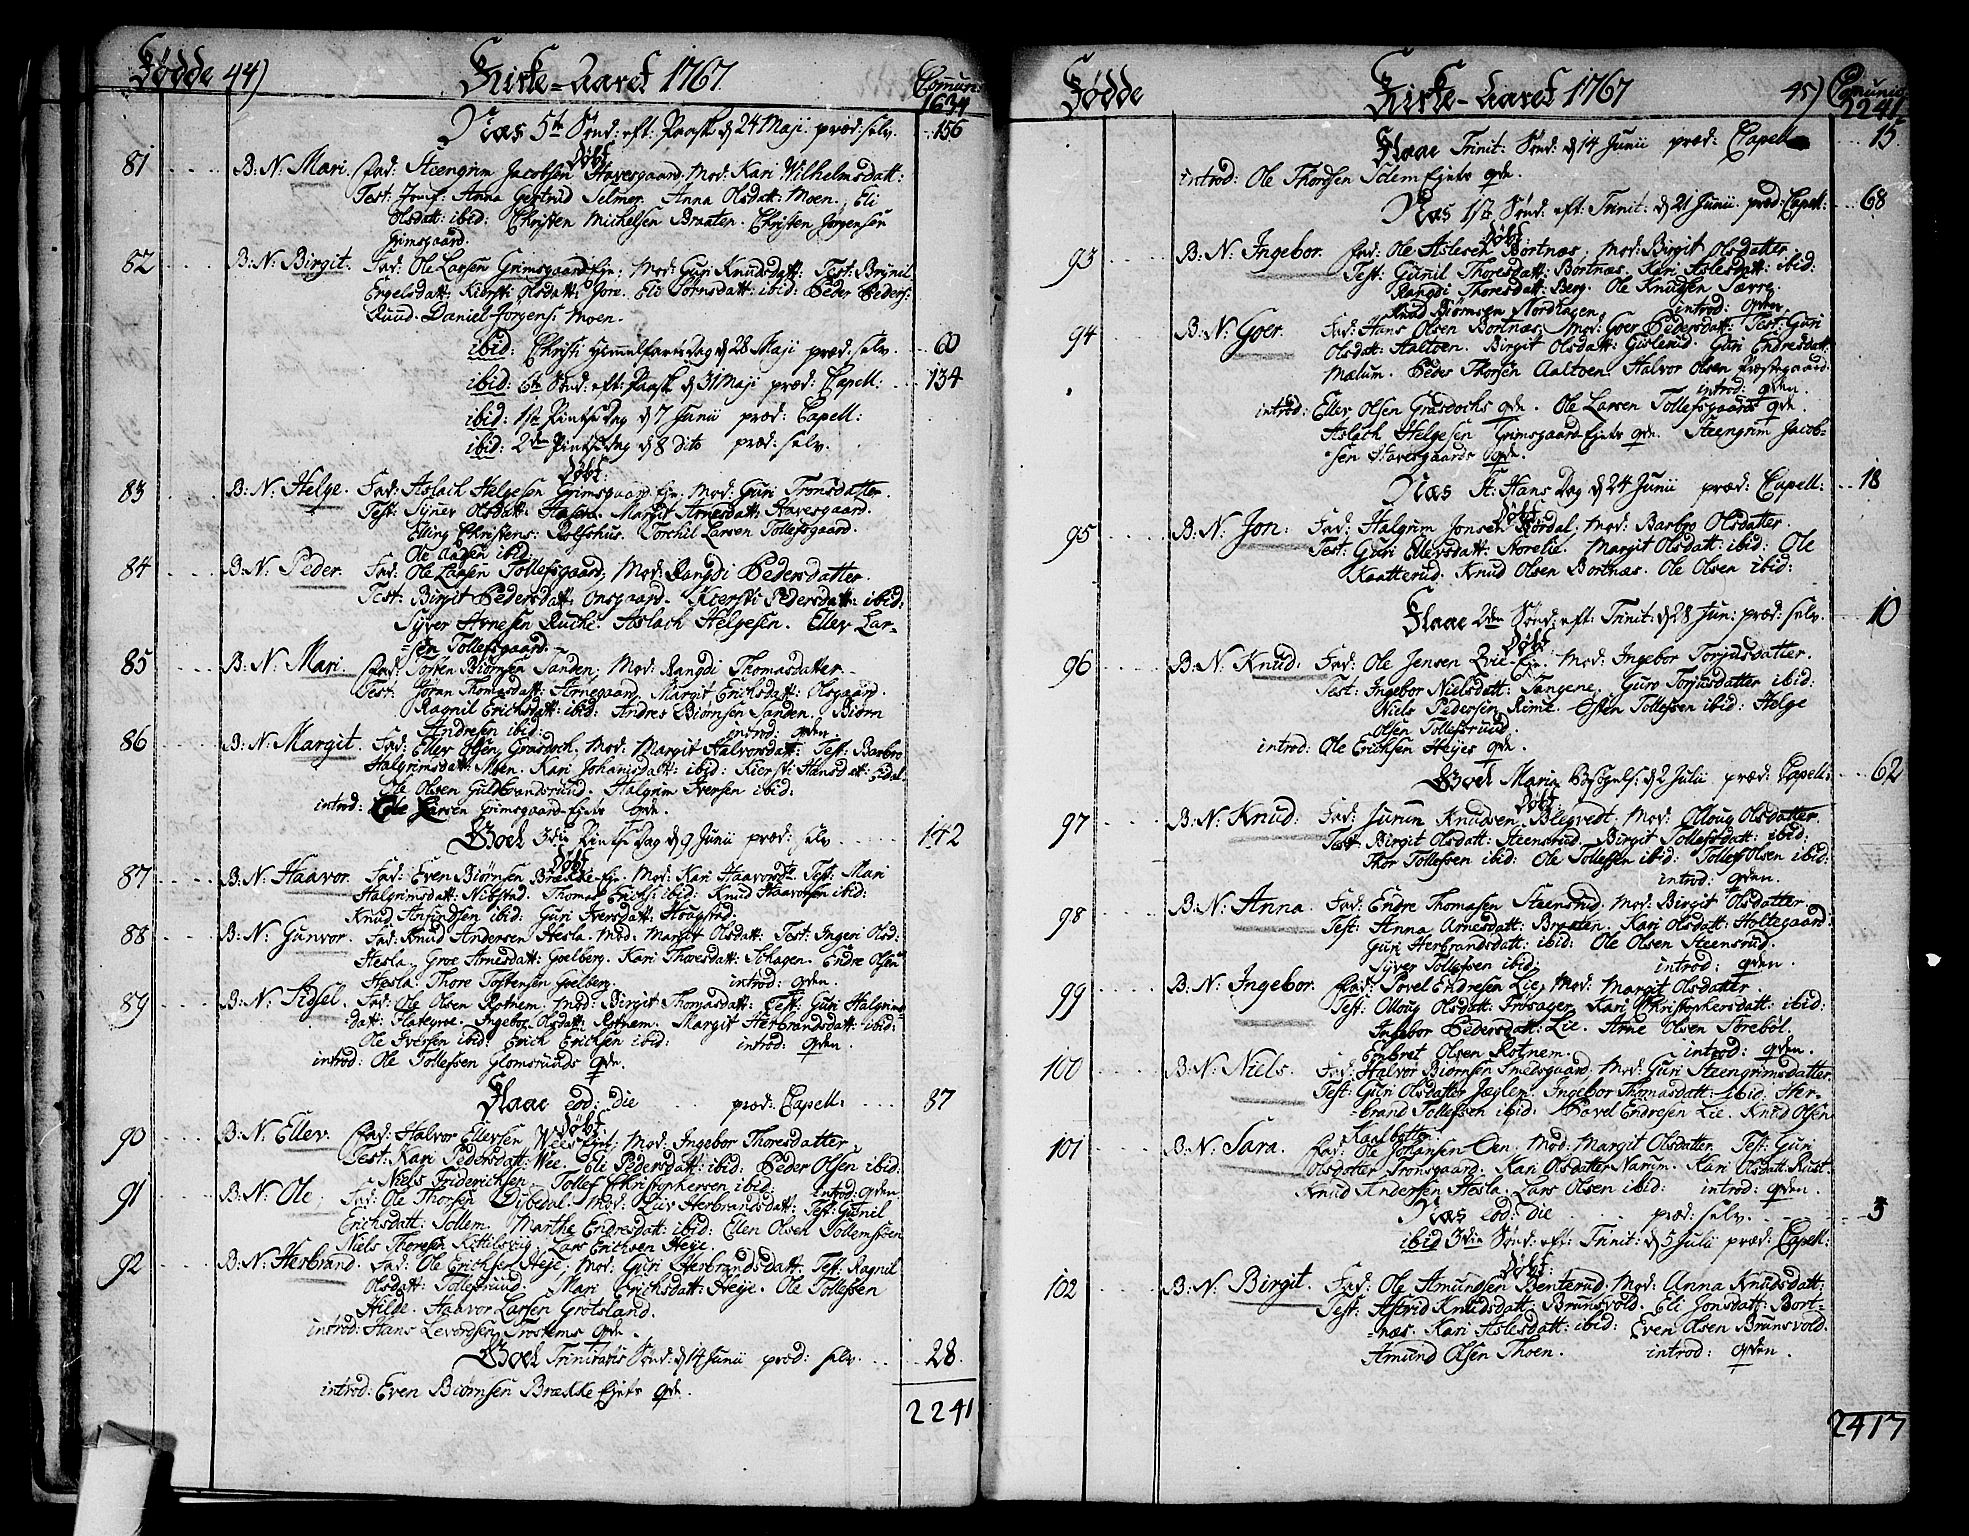 Fødde 44) Kirke-Aaret 1767 Comun:
1634
Næs 5te Sønd: eft: Paask d 24 Maji præd: selv. 156
Døbt
81 B: N: Mari. Fad: Steengrim Jacobsen Havesgaard. Mod: Kari Wilhelmsdatt:
Test: Jomf: Anna Gertrud Selmer. Anna Olsdatt: Moen. Eli
Olsdatt: ibid: Christen Michelsen Braaten. Christen Jørgensen
Grimsgaard.
82 B: N: Birgit. Fad: Ole Larsen Grimsgaard-Eje: Mod: Guri Knudsdatt: Test: Brynil
Engelsdatt: Kiersti Olsdatt: Jore. Eli Børnsdatt: ibid: Peder Peders:
Ruud. Daniel Jørgens: Moen.
ibid: Christi Himmelfarts Dag d 28 Maji præd: selv. 60
ibid: 6te Sønd: eft: Paask d 31 Maji præd: Capell: 134
ibid: 1ste Pintse Dag d 7 Junii præd: Capell:
ibid: 2den Pintse Dag d 8 dito præd: selv.
Døbt:
83 B: N: Helge. Fad: Aslach Helgesen Grimsgaard-Eje: Mod: Guri Tronsdatter.
Test: Syner Olsdatt: Margit Arnesdatt: Havesgaard.
Elling Christens: Rolfshus. Torchil Larsen Tollefsgaard.
Ole Aasen ibid:
84 B: N: Peder. Fad: Ole Larsen Tollefsgaard, Mod: Rangdi Pedersdatter.
Test: Birgit Pedersdatt: Onsgaard. Kiersti Pedersdatt: ibid:
Syver Arnesen Ruche. Aslach Helgesen. Ellev Lar-
=sen Tollefsgaard.
85 B: N: Mari. Fad: Torsen Biørnsen Sanden, Mod: Rangdi Thomasdatter
Test: Jøran Thomasdatt: Arnegaard. Margit Erichsdatt: Olsgaard.
Ragnil Erichsdatt: ibid: Andres Biørnsen Sanden. Biørn
Andresen ibid: introd: qvden.
86 B: N: Margit. Fad: Ellev Olsen Grasdoch, Mod: Margit Halvorsdatt: Test: Barbro
Halgrimsdatt: Moen. Kari Johansdatt: ibid: Kiersti Hansdatt: Eidal.
Ole Olsen Guldbrandsruud. Halgrim Iversen ibid:
introd: Ole Larsen Grimsgaard-Ejets qvde.
Goel 3die Pintse Dag d 9 Junii præd: selv 142
Døbt
87 B: N: Haavor. Fad: Even Biørnsen Brække-Eje. Mod: Kari Haavorsdt. Test: Mari
Halgrimsdatt: Nibstad. Thomas Erichs: ibid: Knud Haavorsen ibid:
Knud Anfindsen ibid: Guri Iversdatt: Hougstad.
88 B: N: Gunvor. Fad: Knud Andersen Hesla. Mod: Margit Olsdatt: Test: Ingeri Olsd:
Hesla. Groe Arnesdatt: Goelberg. Kari Thoresdatt: Schagen. Endre Olsen
Hesla. Thore Tostensen Goelberg. introd: qvden.
89 B: N: Sidsel. Fad: Ole Olsen Rotnem. Mod: Birgit Thomasdatt: Test: Guri Halgrims-
datt: Flategroe. Ingebor Olsdatt: Rotnem. Margit Herbrandsdatt: ibid:
Ole Iversen ibid: Erich Erichsen ibid: introd: qvden.
introd: Ole Tollefsen Glomsruuds qvde.
Flaae eod: die præd: Capell: 87
Døbt
90 B: N: Ellev. Fad: Halvor Ellevsen Wees Ejet, Mod: Ingebor Thoresdatter,
Test: Kari Pedersdatt: Wee. Eli Pedersdatt: ibid: Peder Olsen ibid.
Niels Friderichsen. Tollef Christophersen ibid: introd: qvden.
91 B: N: Ole. Fad: Ole Thorsen Dibedal. Mod: Liv Herbrandsdatt: Test: Gunil
Erichsdatt: Sollem. Marthe Endresdatt: ibid: Ellen Olsen Sollemstøen
Niels Thoresen Kittilsvig. Lars Erichsen Heje.
92 B: N: Herbrand. Fad: Ole Erichsen Heje, Mod: Guri Herbrandsdatt: Test: Ragnil
Olsdatt: Tollefsruud. Mari Erichsdatt: Heje. Ole Tollefsen
Hilde. Haavor Larsen Grøtsland.
introd: Hans Levordsen Trostems qvde.
Goel Trinitatis Sønd: d 14 Junii præd: selv. 28
introd: Even Biørnsen Brække Ejets qvde.
2241
Fødde Kirke-Aaret 1767 45) Comunic:
2241
Flaae Trinit: Sønd: d 14 Junii præd: Capell 15
introd: Ole Thordsen Solem Ejets qvde.
Næs 1ste Sønd: eft: Trinit: d 21 Junii præd: Capell: 68
Døbt
93 B: N: Ingebor. Fad: Ole Aslesen Bortnæs, Mod: Birgit Olsdatter
Test: Gunil Thoresdatt: Bortnæs. Kari Aslesdatt: ibid:
Rangdi Thoresdatt: Berg. Ole Knudsen Særre.
Knud Biørnsen Nordhagen. introd: qvden.
94 B: N: Goer. Fad: Hans Olsen Bortnæs, Mod: Goer Pedersdatt: Test: Guri
Olsdatt: Aaltoen. Birgit Olsdatt: Gislerud. Guri Endresdatt:
Mælum. Peder Thorsen Aaltoen. Halvor Olsen Præstegaard.
introd: qvden.
introd: Ellev Olsen Grasdochs qvde. Ole Larsen Tollefsgaards qvde.
Aslach Helgesen Grimsgaard-Ejets qvde. Steengrim Jacob-
=sen Havesgaards qvde.
Næs St: Hans Dag d 24 Junii præd: Capell: 18
Døbt
95 B: N: Jon. Fad: Halgrim Jonsen Børdal. Mod: Barbro Olsdatter.
Test: Guri Ellevsdatt: Horelie. Margit Olsdatt: ibid: Ole
Kaatterud. Knud Olsen Bortnæs. Ole Olsen ibid:
Flaae 2den Sønd: eft: Trinit: d 28 Jun: præd: selv. 10
Døbt
96 B: N: Knud. Fad: Ole Jensen Qvie-Eje. Mod: Ingebor Torjusdatter.
Test: Ingebor Nielsdatt: Tangene, Guro Torjusdatter ibid:
Niels Pedersen Rime. Østen Tollefsen ibid: Helge
Olsen Tollefsruud.
introd: Ole Erichsen Hejes qvde.
Goel Mariæ Besøgels: d 2 Julii præd: Capell: 62
Døbt:
97 B: N: Knud. Fad: Jurun Knudsen Blegvedt. Mod: Olloug Olsdatter.
Test: Birgit Olsdatt: Steensrud. Birgit Tollefsdatt: ibid:
Thor Tollefsen ibid: Ole Tollefsen ibid: Tollef Olsen ibid:
introd: qvden.
98 B: N: Anna. Fad: Endre Thomasen Steensrud. Mod: Birgit Olsdatter
Test: Anna Arnesdatt: Braaten. Kari Olsdatt: Holtegaard:
Guri Herbrandsdatt: ibid: Ole Olsen Steensrud.
Syver Tollefsen ibid: introd: qvden.
99 B: N: Ingebor. Fad: Povel Endresen Lie, Mod: Margit Olsdatter.
Test: Olloug Olsdatt: Frøsager. Kari Christophersdatt: ibid:
Ingebor Pedersdatt: Lie. Arne Olsen Storebøl.
Enbret Olsen Rotnem. introd: qvden.
100 B: N: Niels. Fad: Halvor Biørnsen Smedsgaard. Mod: Guri Steengrimsdatter
Test: Guri Olsdatter Jaglem. Ingebor Thomasdatt: ibid. Her-
-brand Tollefsen ibid: Povel Endresen Lie. Knud Olsen
Kaalbøtter.
101 B: N: Sara. Fad: Ole Johansen Øen. Mod: Margit Olsdatter. Test: Guri
Olsdatter Tronsgaard. Kari Olsdatter Narum. Kari Olsdatt: Rust.
Knud Andersen Hesla. Lars Olsen ibid: introd: qvden.
Næs eod: die præd: selv. 3
ibid 3die Sønd: eft: Trinit: d 5 Julii præd: Capell:
Døbt:
102 B: N: Birgit. Fad: Ole Amundsen Benterud, Mod: Anna Knudsdatt:
Test: Astrid Knudsdatt: Brunsvold. Eli Jonsdatt: Bort-
=næs. Kari Aslesdatt: ibid: Even Olsen Brunsvold.
Amund Olsen Thoen. introd: qvden.
2417